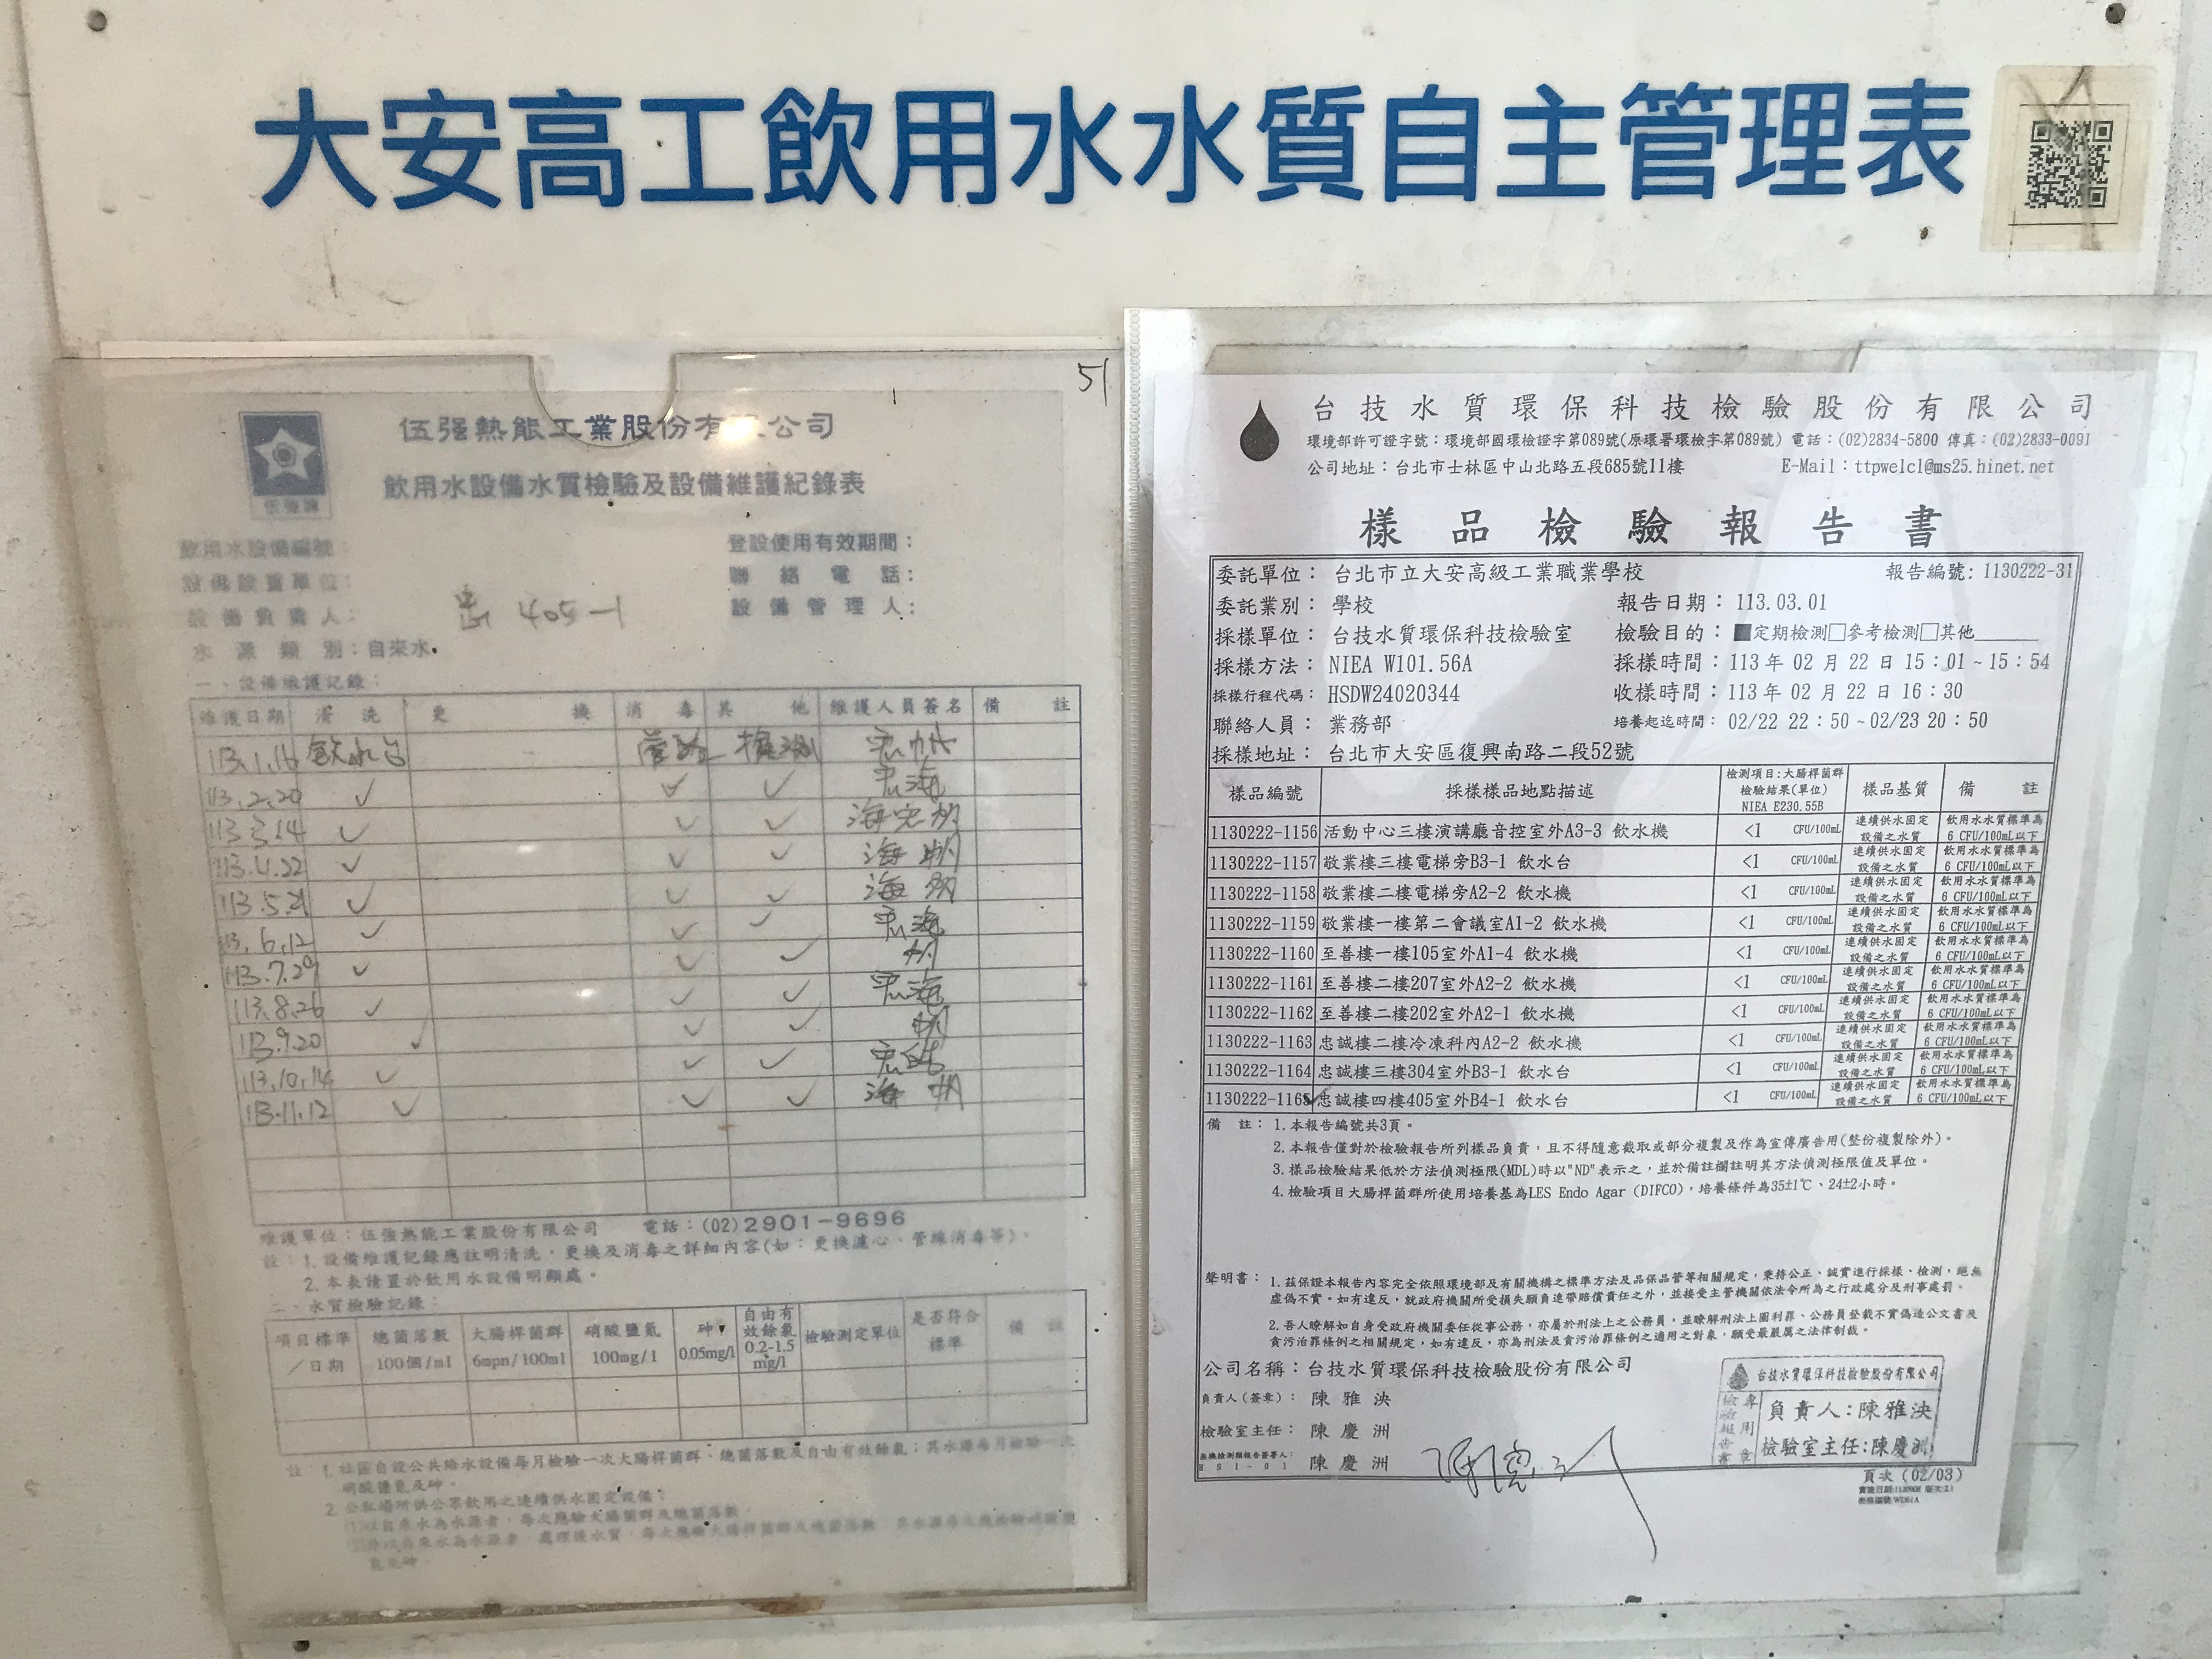 大安高工飲用水水質自主管理表
51
伍强熱能工業股份有限公司
飲用水設備水質檢驗及設備維護紀錄表
伍強牌
飲用水設備編號：
登設使用有效期間：
設備設置單位：
聯絡電話：
設備負責人：
405-1
設備管理人：
水源類別：自來水
一、設備維護記錄：
維護日期 清洗 更換 消毒 其他 維護人員簽名 備註
113.1.16 飲水台
113.2.20 ✓ ✓ ✓
113.3.14 ✓ ✓ ✓
113.4.22 ✓ ✓ ✓
113.5.21 ✓ ✓ ✓
113.6.12 ✓ ✓ ✓
113.7.29 ✓ ✓ ✓
113.8.26 ✓ ✓ ✓
113.9.20 ✓ ✓ ✓
113.10.14 ✓ ✓ ✓
113.11.12 ✓ ✓ ✓
維護單位：伍強熱能工業股份有限公司 電話：(02)2901-9696
註：1. 設備維護記錄應註明清洗，更換及消毒之詳細內容(如：更換濾心、管線消毒等)。
2. 本表請置於飲用水設備明顯處。
二、水質檢驗記錄：
項目標準／日期 總菌落數 100個/ml 大腸桿菌群 6mpn/100ml 硝酸鹽氮 100mg/l 砷 0.05mg/l 自由有效餘氯 0.2-1.5 mg/l 檢驗測定單位 是否符合標準 備註
註：1. 社區自設公共給水設備每月檢驗一次大腸桿菌群、總菌落數及自由有效餘氯；其水源每月檢驗一次
硝酸鹽氮及砷。
2. 公私場所供公眾飲用之連續供水固定設備：
(1)以自來水為水源者，每次應驗大腸桿菌群及總菌落數。
台技水質環保科技檢驗股份有限公司
環境部許可證字號：環境部國環檢證字第089號(原環署環檢字第089號) 電話：(02)2834-5800 傳真：(02)2833-0091
公司地址：台北市士林區中山北路五段685號11樓 E-Mail：ttpwelcl@ms25.hinet.net
樣品檢驗報告書
委託單位：台北市立大安高級工業職業學校 報告編號：1130222-31
委託業別：學校 報告日期：113.03.01
採樣單位：台技水質環保科技檢驗室 檢驗目的：■定期檢測□參考檢測□其他
採樣方法：NIEA W101.56A 採樣時間：113年02月22日15：01~15：54
採樣行程代碼：HSDW24020344 收樣時間：113年02月22日16：30
聯絡人員：業務部 培養起迄時間：02/22 22：50~02/23 20：50
採樣地址：台北市大安區復興南路二段52號
樣品編號 採樣樣品地點描述 檢測項目：大腸桿菌群 檢驗結果(單位) NIEA E230.55B 樣品基質 備註
1130222-1156 活動中心三樓演講廳音控室外A3-3 飲水機 <1 CFU/100mL 連續供水固定設備之水質 飲用水水質標準為6 CFU/100mL以下
1130222-1157 敬業樓三樓電梯旁B3-1 飲水台 <1 CFU/100mL 連續供水固定設備之水質 飲用水水質標準為6 CFU/100mL以下
1130222-1158 敬業樓二樓電梯旁A2-2 飲水機 <1 CFU/100mL 連續供水固定設備之水質 飲用水水質標準為6 CFU/100mL以下
1130222-1159 敬業樓一樓第二會議室A1-2 飲水機 <1 CFU/100mL 連續供水固定設備之水質 飲用水水質標準為6 CFU/100mL以下
1130222-1160 至善樓一樓105室外A1-4 飲水機 <1 CFU/100mL 連續供水固定設備之水質 飲用水水質標準為6 CFU/100mL以下
1130222-1161 至善樓二樓207室外A2-2 飲水機 <1 CFU/100mL 連續供水固定設備之水質 飲用水水質標準為6 CFU/100mL以下
1130222-1162 至善樓二樓202室外A2-1 飲水機 <1 CFU/100mL 連續供水固定設備之水質 飲用水水質標準為6 CFU/100mL以下
1130222-1163 忠誠樓二樓冷凍科內A2-2 飲水機 <1 CFU/100mL 連續供水固定設備之水質 飲用水水質標準為6 CFU/100mL以下
1130222-1164 忠誠樓三樓304室外B3-1 飲水台 <1 CFU/100mL 連續供水固定設備之水質 飲用水水質標準為6 CFU/100mL以下
1130222-1165 忠誠樓四樓405室外B4-1 飲水台 <1 CFU/100mL 連續供水固定設備之水質 飲用水水質標準為6 CFU/100mL以下
備註：1.本報告編號共3頁。
2.本報告僅對於檢驗報告所列樣品負責，且不得隨意截取或部分複製及作為宣傳廣告用(整份複製除外)。
3.樣品檢驗結果低於方法偵測極限(MDL)時以"ND"表示之，並於備註欄註明其方法偵測極限值及單位。
4.檢驗項目大腸桿菌群所使用培養基為LES Endo Agar (DIFCO)，培養條件為35±1℃、24±2小時。
聲明書：1.茲保證本報告內容完全依照環境部及有關機構之標準方法及品保品管等相關規定，秉持公正、誠實進行採樣、檢測，絕無
虛偽不實。如有違反，就政府機關所受損失願負連帶賠償責任之外，並接受主管機關依法令所為之行政處分及刑事處罰。
2.吾人瞭解如自身受政府機關委任從事公務，亦屬於刑法上之公務員，並瞭解刑法上圖利罪、公務員登載不實偽造公文書及
貪污治罪條例之相關規定，如有違反，亦為刑法及貪污治罪條例之適用之對象，願受最嚴厲之法律制裁。
公司名稱：台技水質環保科技檢驗股份有限公司
負責人(簽章)：陳雅泱
檢驗室主任：陳慶洲
無機檢測類報告簽署人：陳慶洲
HSI-01
台技水質環保科技檢驗股份有限公司
檢驗報告書專用章
負責人：陳雅泱
檢驗室主任：陳慶洲
頁次(02/03)